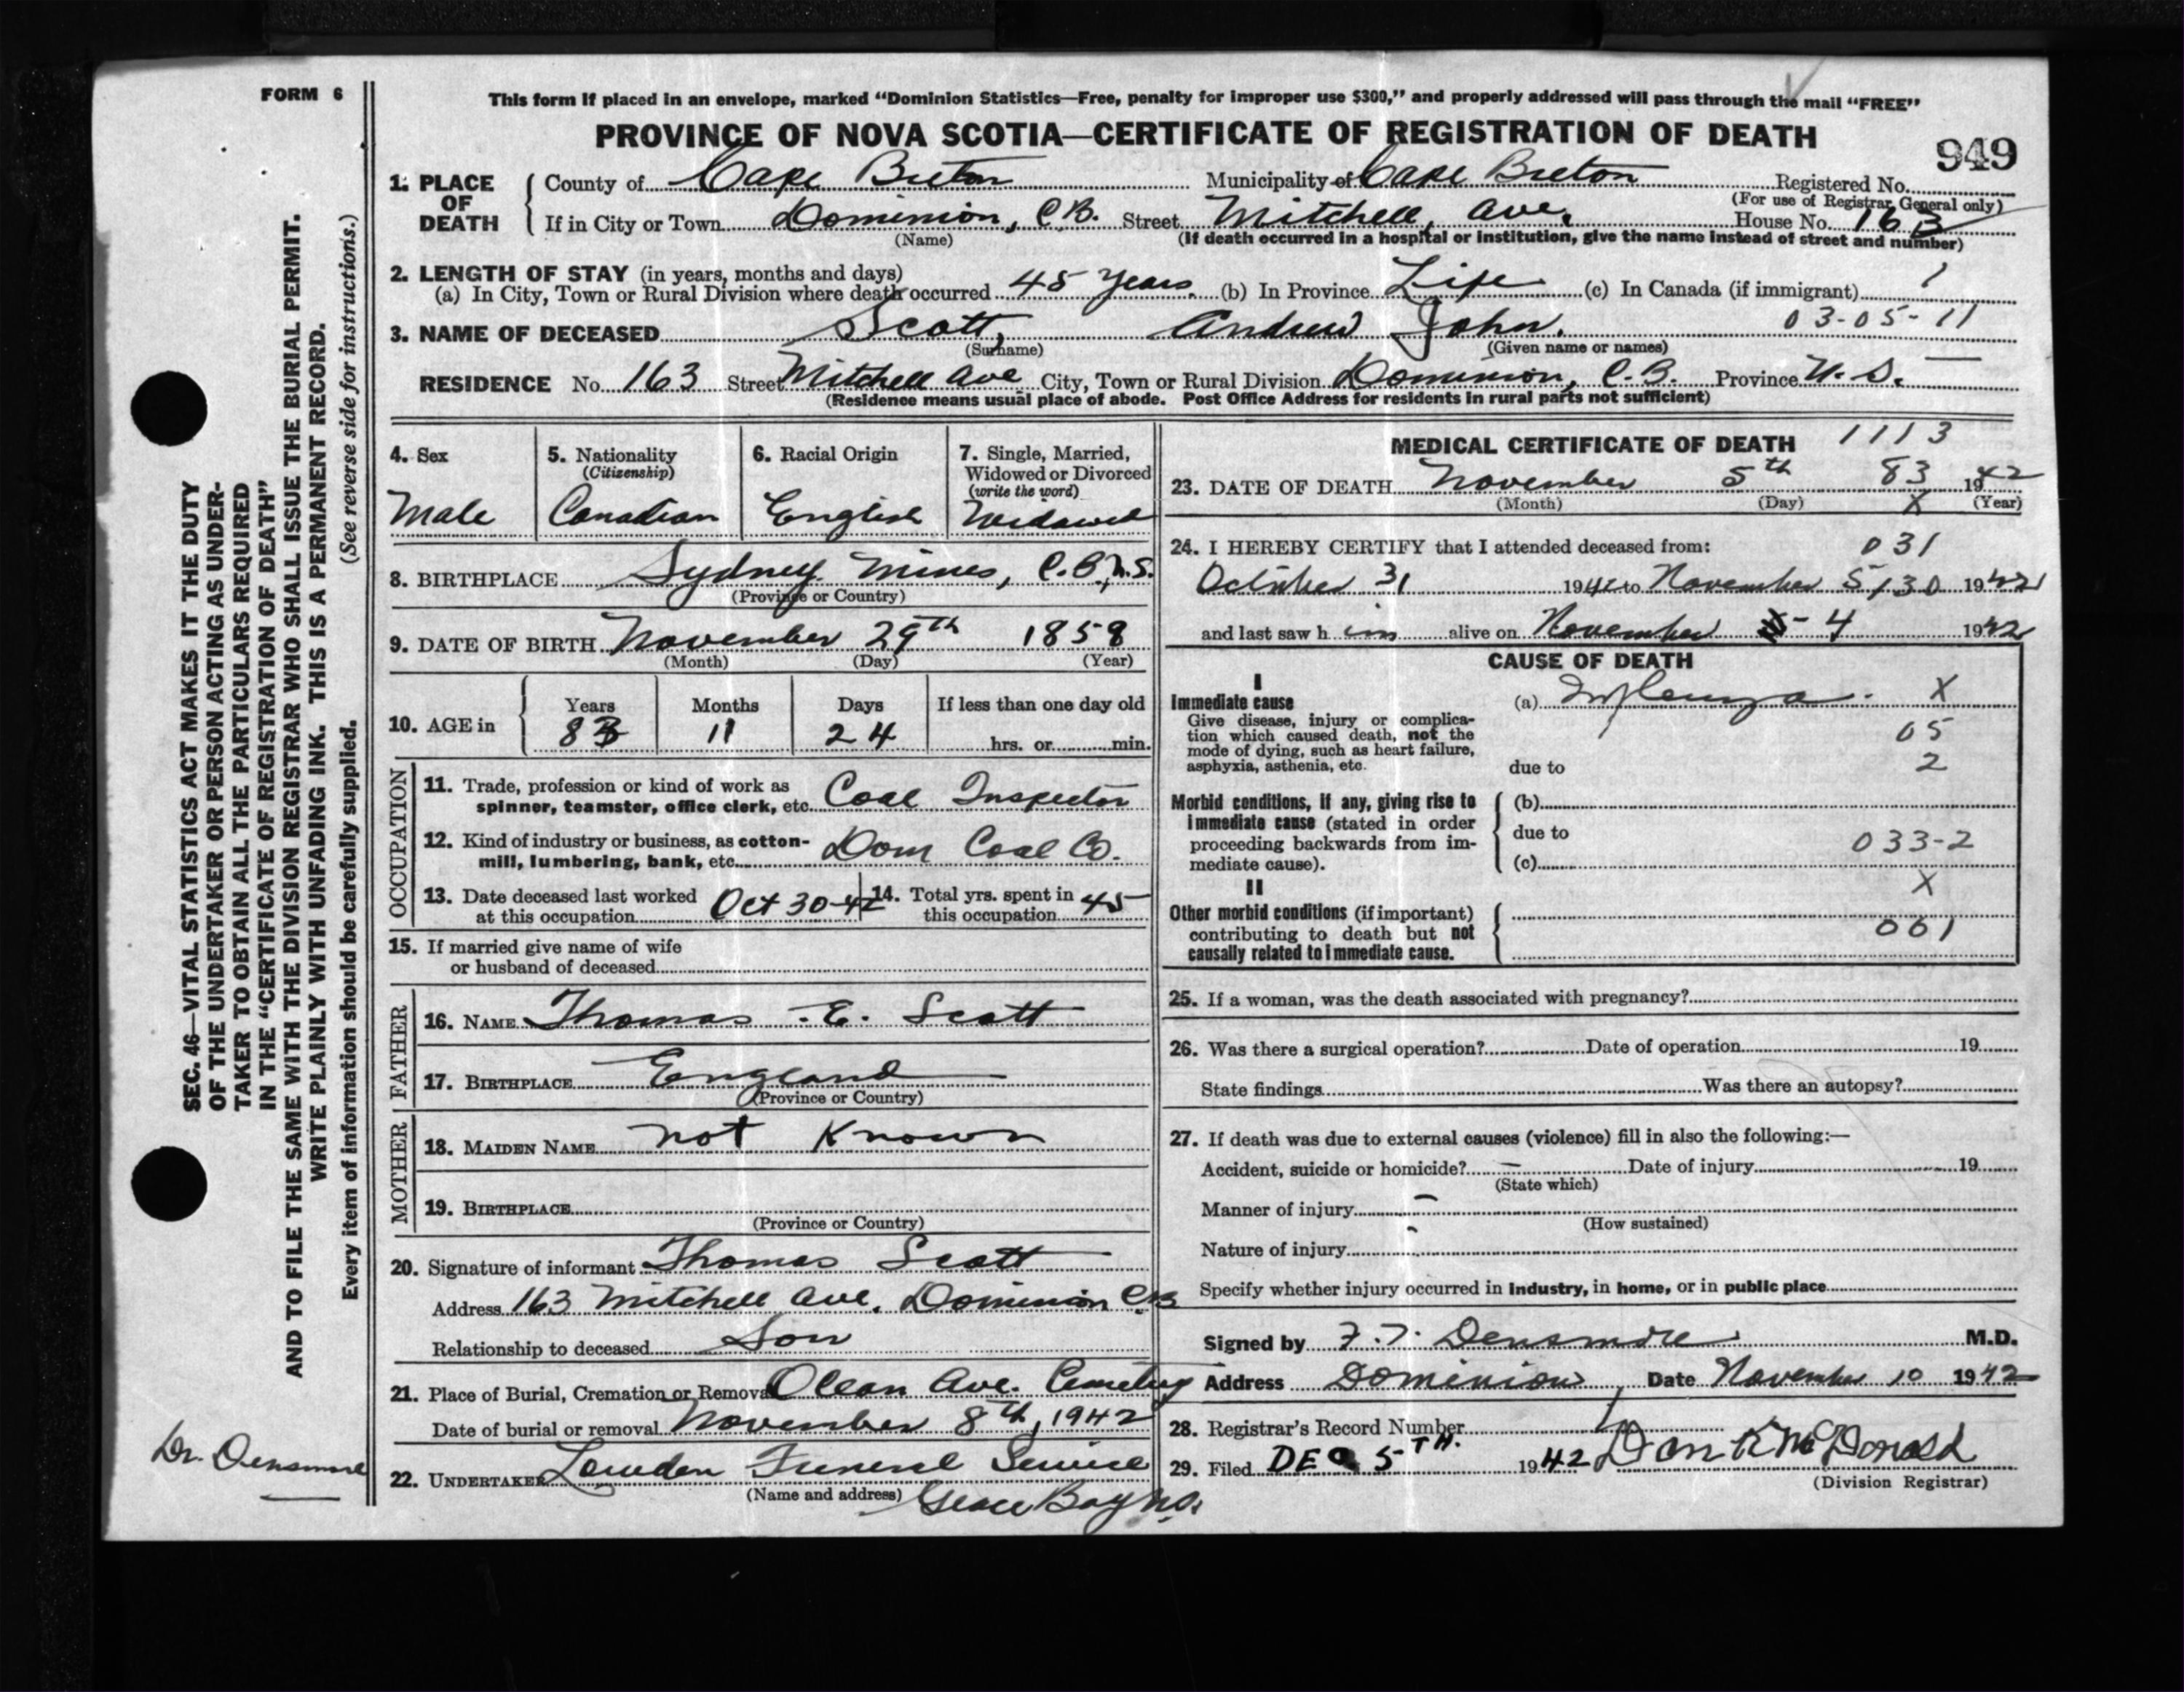 FORM 6
This form if placed in an envelope, marked "Dominion Statistics—Free, penalty for improper use $300," and properly addressed will pass through the mail "FREE"
PROVINCE OF NOVA SCOTIA—CERTIFICATE OF REGISTRATION OF DEATH
949
1. PLACE OF DEATH
County of Cape Breton Municipality of Cape Breton Registered No.
(For use of Registrar General only)
If in City or Town Dominion, C.B. Street Mitchell, Ave. House No. 163
(Name) (If death occurred in a hospital or institution, give the name instead of street and number)
2. LENGTH OF STAY (in years, months and days)
(a) In City, Town or Rural Division where death occurred 45 years. (b) In Province Life (c) In Canada (if immigrant) 1
03-05-11
3. NAME OF DECEASED Scott, Andrew John.
(Surname) (Given name or names)
RESIDENCE No. 163 Street Mitchell Ave City, Town or Rural Division Dominion, C.B. Province N.S.
(Residence means usual place of abode. Post Office Address for residents in rural parts not sufficient)
4. Sex
Male
5. Nationality
(Citizenship)
Canadian
6. Racial Origin
English
7. Single, Married, Widowed or Divorced
(write the word)
Widowed
8. BIRTHPLACE Sydney Mines, C.B, N.S.
(Province or Country)
9. DATE OF BIRTH November 29th 1858
(Month) (Day) (Year)
10. AGE in
Years Months Days If less than one day old
83 11 24 hrs. or min.
OCCUPATION
11. Trade, profession or kind of work as
spinner, teamster, office clerk, etc. Coal Inspector
12. Kind of industry or business, as cotton-
mill, lumbering, bank, etc. Dom Coal Co.
13. Date deceased last worked
at this occupation Oct 30-42
14. Total yrs. spent in
this occupation 45
15. If married give name of wife
or husband of deceased
FATHER
16. NAME Thomas .E. Scott
17. BIRTHPLACE England
(Province or Country)
MOTHER
18. MAIDEN NAME not Known
19. BIRTHPLACE
(Province or Country)
20. Signature of informant Thomas Scott
Address 163 Mitchell Ave. Dominion C.B
Relationship to deceased Son
21. Place of Burial, Cremation or Removal Ocean Ave. Cemetery
Date of burial or removal November 8th, 1942
22. UNDERTAKER Lowden Funeral Service
(Name and address) Glace Bay N.S.
MEDICAL CERTIFICATE OF DEATH
1113
23. DATE OF DEATH November 5th 83 1942
(Month) (Day) X (Year)
24. I HEREBY CERTIFY that I attended deceased from:
031
October 31 1942 to November 5, 30 1942
and last saw h im alive on November - 4 1942
CAUSE OF DEATH
I
Immediate cause
Give disease, injury or complica-
tion which caused death, not the
mode of dying, such as heart failure,
asphyxia, asthenia, etc.
(a) Influenza. X
05
due to 2
Morbid conditions, if any, giving rise to
immediate cause (stated in order
proceeding backwards from im-
mediate cause).
(b)
due to
033-2
(c)
X
II
Other morbid conditions (if important)
contributing to death but not
causally related to immediate cause.
061
25. If a woman, was the death associated with pregnancy?
26. Was there a surgical operation? Date of operation 19
State findings Was there an autopsy?
27. If death was due to external causes (violence) fill in also the following:—
Accident, suicide or homicide? — Date of injury 19
(State which)
Manner of injury –
(How sustained)
Nature of injury -
Specify whether injury occurred in industry, in home, or in public place
Signed by F.T. Densmore M.D.
Address Dominion, Date November 10 1942
28. Registrar's Record Number
29. Filed DEC 5TH. 1942 Dan R McDonald
(Division Registrar)
SEC. 46—VITAL STATISTICS ACT MAKES IT THE DUTY
OF THE UNDERTAKER OR PERSON ACTING AS UNDER-
TAKER TO OBTAIN ALL THE PARTICULARS REQUIRED
IN THE "CERTIFICATE OF REGISTRATION OF DEATH"
AND TO FILE THE SAME WITH THE DIVISION REGISTRAR WHO SHALL ISSUE THE BURIAL PERMIT.
WRITE PLAINLY WITH UNFADING INK. THIS IS A PERMANENT RECORD.
Every item of information should be carefully supplied. (See reverse side for instructions.)
Dr. Densmore